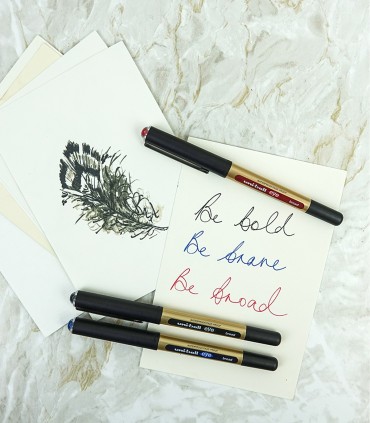 uni-ball eye
broad
Be bold
Be brave
Be broad
uni-ball eye
broad
uni-ball eye
broad